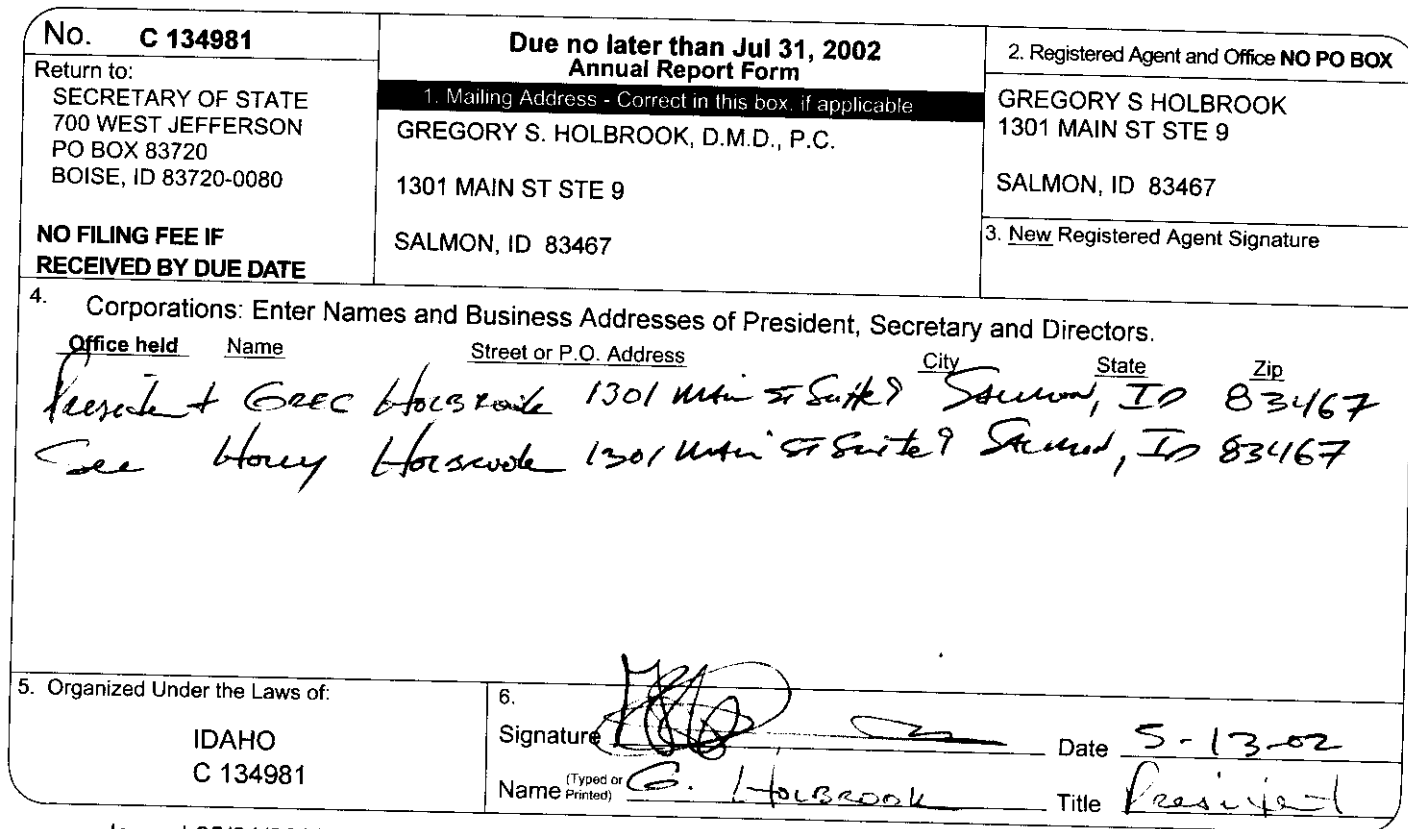 No. C 134981
Return to:
SECRETARY OF STATE
700 WEST JEFFERSON
PO BOX 83720
BOISE, ID 83720-0080
NO FILING FEE IF
RECEIVED BY DUE DATE
Due no later than Jul 31, 2002
Annual Report Form
1. Mailing Address - Correct in this box, if applicable
GREGORY S. HOLBROOK, D.M.D., P.C.
1301 MAIN ST STE 9
SALMON, ID 83467
2. Registered Agent and Office NO PO BOX
GREGORY S HOLBROOK
1301 MAIN ST STE 9
SALMON, ID 83467
3. New Registered Agent Signature
4. Corporations: Enter Names and Business Addresses of President, Secretary and Directors.
Office held Name Street or P.O. Address City State Zip
President GREG HOLBROOK 1301 Main ST Suite 9 SALMON, ID 83467
Sec Holly HOLBROOK 1301 Main ST Suite 9 SALMON, ID 83467
5. Organized Under the Laws of:
IDAHO
C 134981
6.
Signature Date 5-13-02
Name (Typed or Printed) G. HOLBROOK Title President